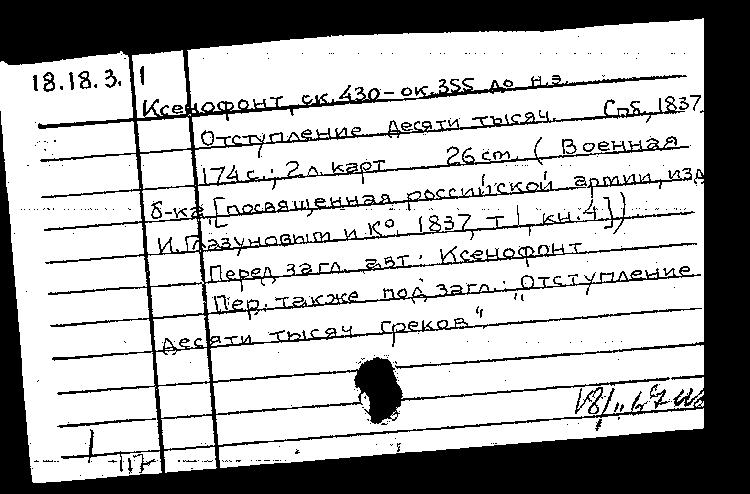 18.18.3. 1
Ксенофонт, ок.430-ок.355 до н.э.
Отступление десяти тысяч. Спб, 1837
174с.; 2л. карт 26cm. ( Военная
б-ка, [посвященная российской армии, изд
И. Глазуновым и К°. 1837, т 1, кн.4.])
Перед загл. авт: Ксенофонт
Пер. также под загл.: „Отступление
десяти тысяч греков“.
1